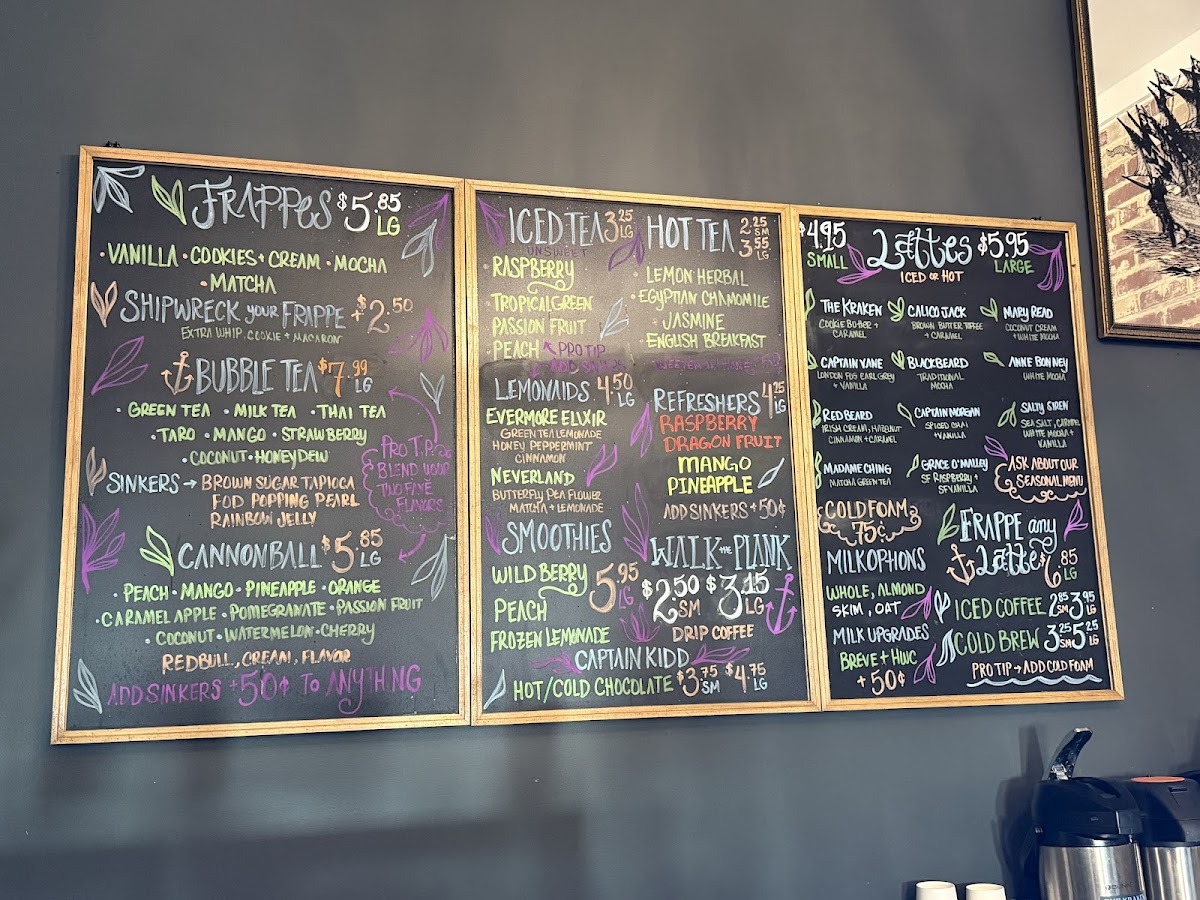 FRAPPES $5.85 LG
·VANILLA ·COOKIES+CREAM ·MOCHA
·MATCHA
SHIPWRECK YOUR FRAPPE +$2.50
EXTRA WHIP, COOKIE + MACARON
BUBBLE TEA $7.99 LG
·GREEN TEA ·MILK TEA ·THAI TEA
·TARO ·MANGO ·STRAWBERRY
·COCONUT ·HONEYDEW
PRO TIP
BLEND YOUR
TWO FAVE
FLAVORS
SINKERS → BROWN SUGAR TAPIOCA
POPPING PEARL
RAINBOW JELLY
CANNONBALL $5.85 LG
·PEACH ·MANGO ·PINEAPPLE ·ORANGE
·CARAMEL APPLE ·POMEGRANATE ·PASSION FRUIT
·COCONUT ·WATERMELON ·CHERRY
REDBULL, CREAM, FLAVOR
ADD SINKERS +50¢ TO ANYTHING
ICED TEA 3.25 LG
UNSWEET
·RASPBERRY
·TROPICAL GREEN
PASSION FRUIT
PEACH PRO TIP
ADD
HOT TEA 2.25 SM
3.55 LG
·LEMON HERBAL
·EGYPTIAN CHAMOMILE
·JASMINE
ENGLISH BREAKFAST
LEMONAIDS 4.50 LG
EVERMORE ELIXIR
GREEN TEA LEMONADE
HONEY PEPPERMINT
CINNAMON
NEVERLAND
BUTTERFLY PEA FLOWER
MATCHA + LEMONADE
REFRESHERS 4.25 LG
RASPBERRY
DRAGON FRUIT
MANGO
PINEAPPLE
ADD SINKERS +50¢
SMOOTHIES
WILD BERRY 5.95 LG
PEACH
FROZEN LEMONADE
WALK THE PLANK
$2.50 SM $3.15 LG
DRIP COFFEE
CAPTAIN KIDD
HOT/COLD CHOCOLATE $3.75 SM $4.75 LG
$4.95 SMALL LATTES $5.95 LARGE
ICED OR HOT
THE KRAKEN
COOKIE BUTTER +
CARAMEL
CALICO JACK
BROWN BUTTER TOFFEE
+ CARAMEL
MARY READ
COCONUT CREAM
+ WHITE MOCHA
CAPTAIN VANE
LONDON FOG EARL GREY
+ VANILLA
BLACKBEARD
TRADITIONAL
MOCHA
ANNE BONNEY
WHITE MOCHA
RED BEARD
IRISH CREAM, HAZELNUT
CINNAMON + CARAMEL
CAPTAIN MORGAN
SPICED CHAI
+ VANILLA
SALTY SIREN
SEA SALT, CARAMEL
WHITE MOCHA +
VANILLA
MADAME CHING
MATCHA GREEN TEA
GRACE O'MALLEY
SF RASPBERRY +
SF VANILLA
ASK ABOUT OUR
SEASONAL MENU
COLD FOAM
75¢
MILK OPHONS
WHOLE, ALMOND
SKIM, OAT
MILK UPGRADES
BREVE + HWC
+50¢
FRAPPE any
LATTE $6.85 LG
ICED COFFEE 2.85 SM 3.95 LG
COLD BREW 3.25 SM 5.25 LG
PRO TIP → ADD COLD FOAM